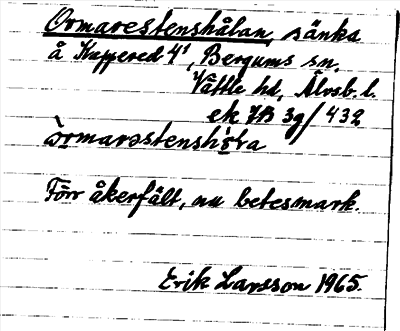 Ormarestenshålan, sänka
å Kuppered 4¹, Bergums sn,
Vättle hd, Älvsb. l.
ek 7B 3g/432
Förr åkerfält, nu betesmark.
Erik Larsson 1965.